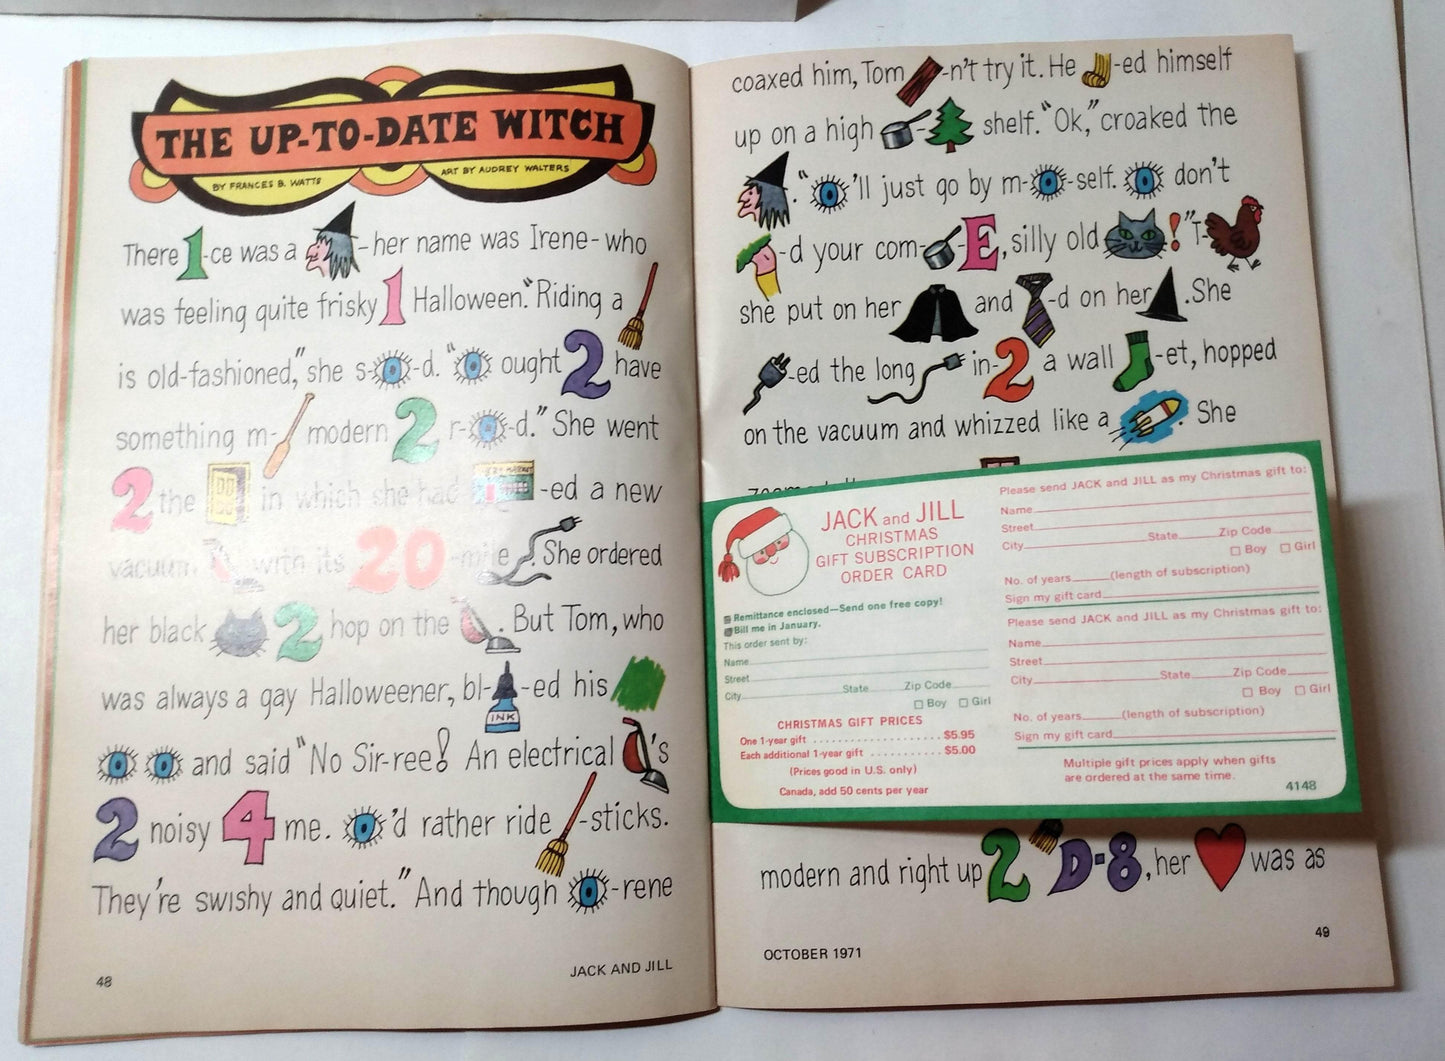 THE UP-TO-DATE WITCH
BY FRANCES B. WATTS
ART BY AUDREY WALTERS
There 1-ce was a -her name was Irene- who
was feeling quite frisky 1 Halloween. "Riding a
is old-fashioned," she s- -d. " ought 2 have
something m- modern 2 r- -d." She went
2 the in which she had -ed a new
vacuum with its 20 -mile . She ordered
her black 2 hop on the . But Tom, who
was always a gay Halloweener, bl- -ed his
INK
and said "No Sir-ree! An electrical 's
2 noisy 4 me. 'd rather ride -sticks.
They're swishy and quiet." And though -rene
48
JACK AND JILL
coaxed him, Tom -n't try it. He -ed himself
up on a high - shelf. "Ok," croaked the
. " 'll just go by m- -self. don't
-d your com- -E, silly old !" T-
she put on her and -d on her . She
-ed the long in-2 a wall -et, hopped
on the vacuum and whizzed like a . She
JACK and JILL
CHRISTMAS
GIFT SUBSCRIPTION
ORDER CARD
Remittance enclosed—Send one free copy!
Bill me in January.
This order sent by:
Name
Street
City State Zip Code
Boy Girl
CHRISTMAS GIFT PRICES
One 1-year gift . . . . . . . . . . . . . . . . . . . . $5.95
Each additional 1-year gift . . . . . . . . . . . $5.00
(Prices good in U.S. only)
Canada, add 50 cents per year
Please send JACK and JILL as my Christmas gift to:
Name
Street
City State Zip Code
Boy Girl
No. of years (length of subscription)
Sign my gift card
Please send JACK and JILL as my Christmas gift to:
Name
Street
City State Zip Code
Boy Girl
No. of years (length of subscription)
Sign my gift card
Multiple gift prices apply when gifts
are ordered at the same time.
4148
modern and right up 2 D-8, her was as
OCTOBER 1971
49